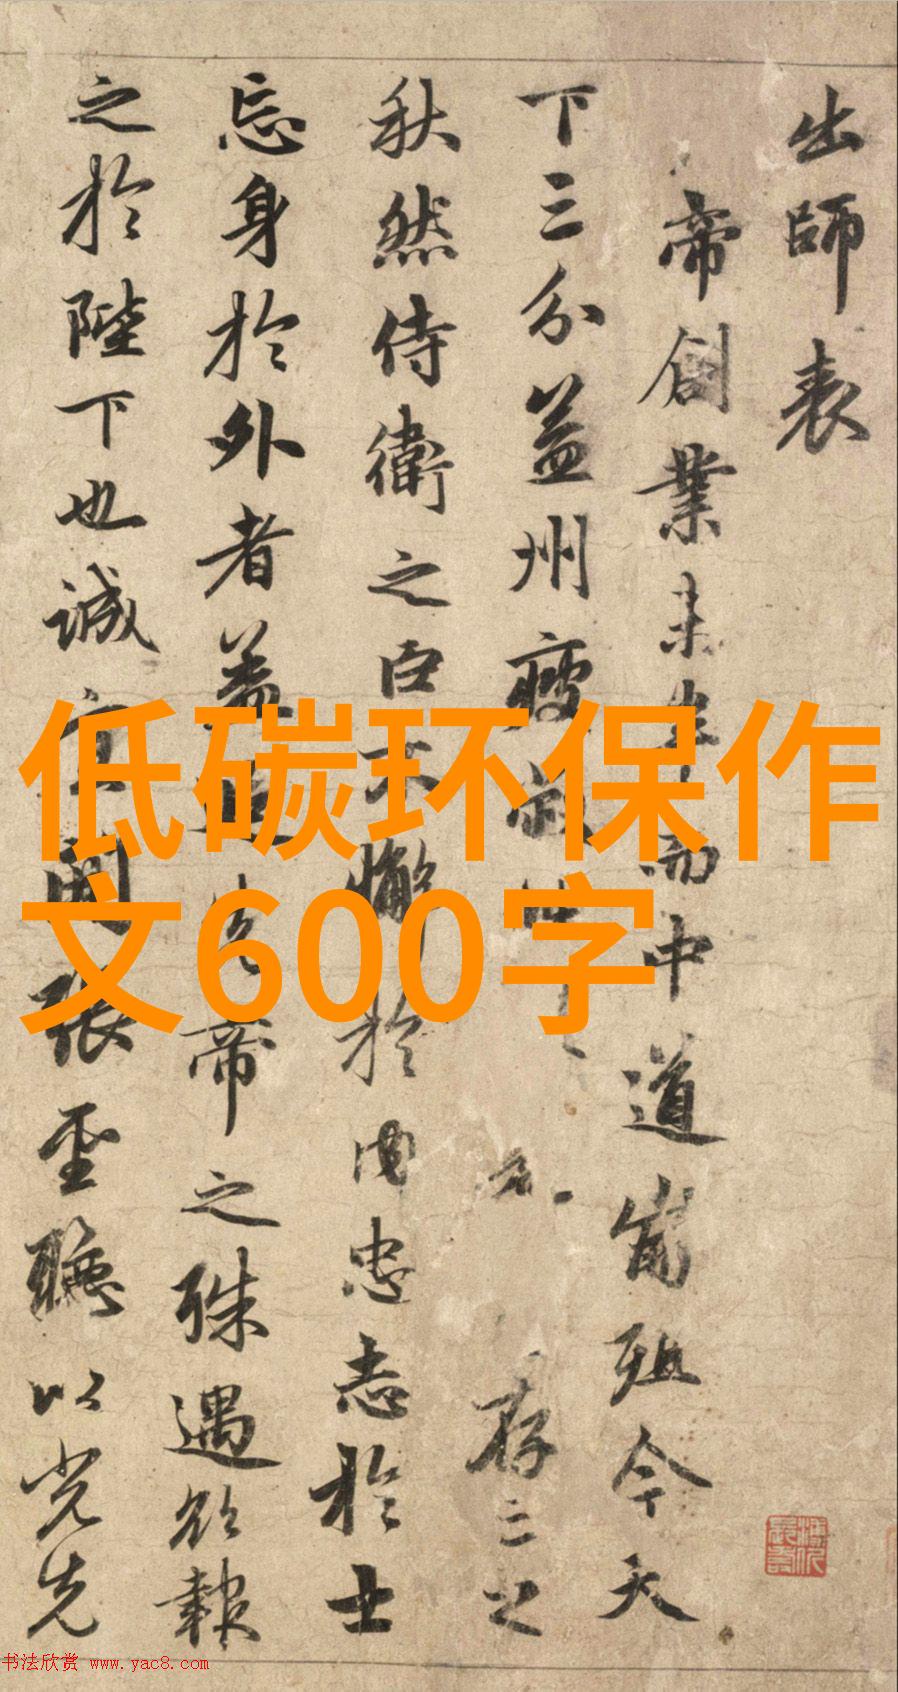 出師表
帝創業未半而中道崩殂今天
下三分益州疲存亡之
秋然侍衛之臣不懈於内忠志於士
忘身於外者蓋追先帝之殊遇欲報
之於陛下也誠宜開張聖聽以光先
低碳环保作
文600字
书法欣赏 www.yac8.com